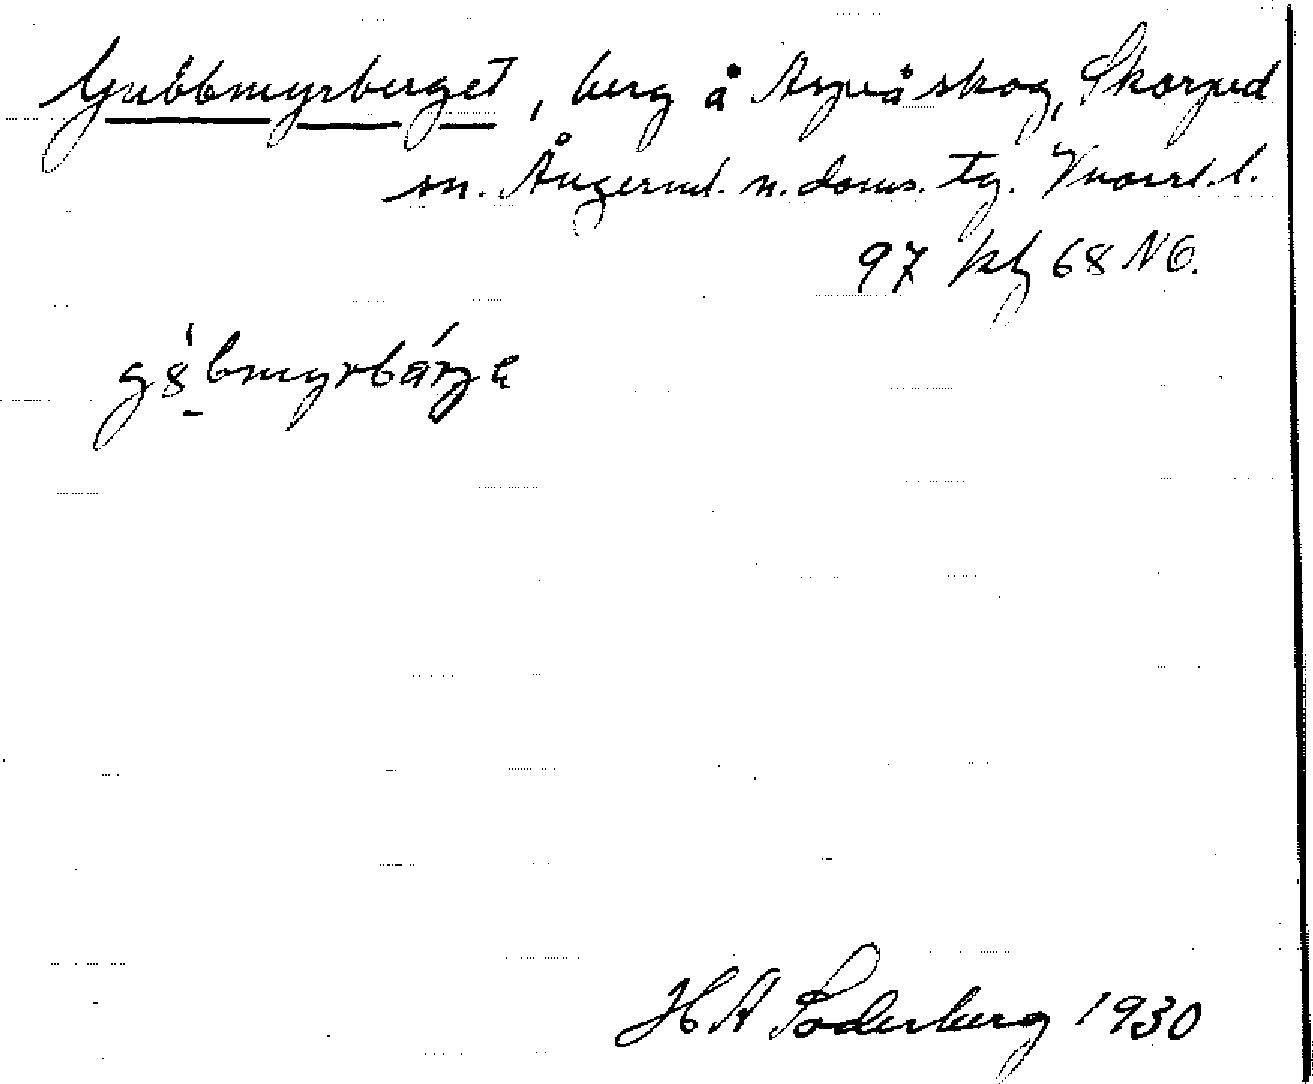 Gubbmyrberget, berg å Aspeåskog, Skorped
sn. Ångerml. n. doms. tg. Vnorrl. l.
97 kbl 68 NO.
gȣ́bmyrbárga
H A Söderberg 1930